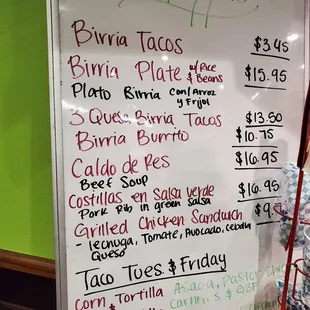 Birria Tacos $3.45
Birria Plate w/ Rice & Beans $15.95
Plato Birria con/Arroz y Frijol
3 Quesa Birria Tacos $13.50
Birria Burrito $10.75
Caldo de Res $16.95
Beef Soup
Costillas en Salsa verde $16.95
Pork Rib in green salsa
Grilled Chicken Sandwich
- lechuga, Tomate, Avocado, cebolla
Queso
Taco Tues. & Friday
Corn Tortilla Asada, Pastor
Carnitas &